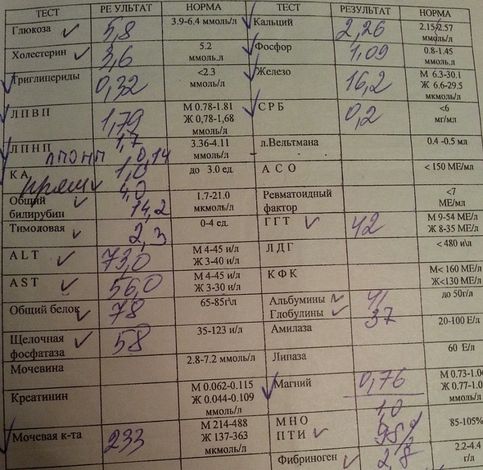 ТЕСТ РЕЗУЛЬТАТ НОРМА ТЕСТ РЕЗУЛЬТАТ НОРМА
Глюкоза 5,8 3.9-6.4 ммоль/л Кальций 2,26 2.15-2.57 ммоль/л
Холестерин 3,6 5.2 ммоль.л Фосфор 1,09 0.8-1.45 ммоль.л
Триглицериды 0,32 <2.3 ммоль/л Железо 16,2 М 6.3-30.1 Ж 6.6-29.5 мкмоль/л
ЛПВП 1,79 М 0.78-1.81 Ж 0,78-1,68 ммоль/л СРБ 0,2 <6 мг/мл
ЛПНП 1,7 3.36-4.11 ммоль/л л.Вельтмана 0.4 -0.5 мл
лпонп 0,14
КА 1,0 до 3.0 ед. А С О < 150 МЕ/мл
прям 4,0
Общий билирубин 14,2 1.7-21.0 мкмоль/л Ревматоидный фактор <7 МЕ/мл
Тимоловая 2,3 0-4 ед. ГГТ 42 М 9-54 МЕ/л Ж 8-35 МЕ/л
ALT 73,0 М 4-45 и/л Ж 3-40 и/л ЛДГ < 480 и/л
AST 56,0 М 4-45 и/л Ж 3-30 и/л КФК М< 160 МЕ/л Ж<130 МЕ/л
Общий белок 78 65-85г\л Альбумины 41 до 50г/л
Глобулины 37
Щелочная фосфатаза 58 35-123 и/л Амилаза 20-100 Е/л
Мочевина 2.8-7.2 ммоль/л Липаза 60 Е/л
Креатинин М 0.062-0.115 Ж 0.044-0.109 ммоль/л Магний 0,76 М 0.73-1.0 Ж 0.77-1.0 ммоль/л
Мочевая к-та 233 М 214-488 Ж 137-363 мкмоль/л МНО 1,0 85-105%
ПТИ 98%
Фибриноген 2,8 2.2-4.4 г/л